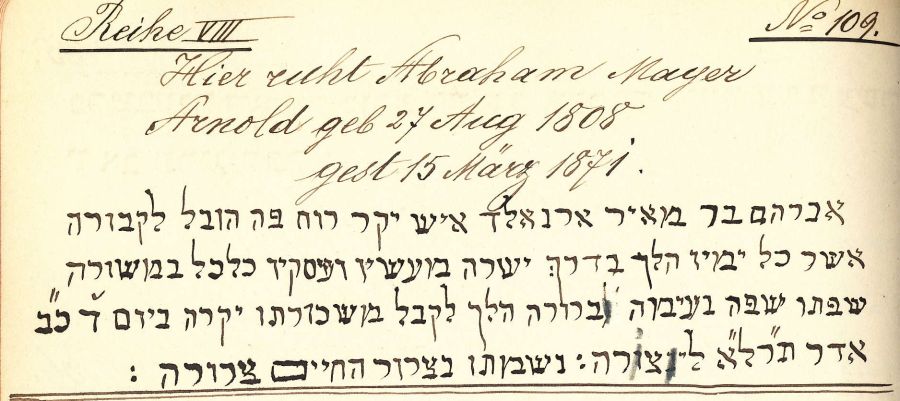 Reihe VIII
No 109.
Hier ruht Abraham Mayer
Arnold geb 27 Aug 1808
gest 15 März 1871.
אברהם בר מאיר ארנאלד איש יקר רוח פה הובל לקבורה
אשר כל ימיו הלך בדרך ישרה מעשיו ועסקיו כלכל במשורה
שפתו שפה נעימה וברורה הלך לקבל משכורתו יקרה ביום ד׳ כ״ב
אדר תרל״א נשמתו בצרור החיים צרורה: